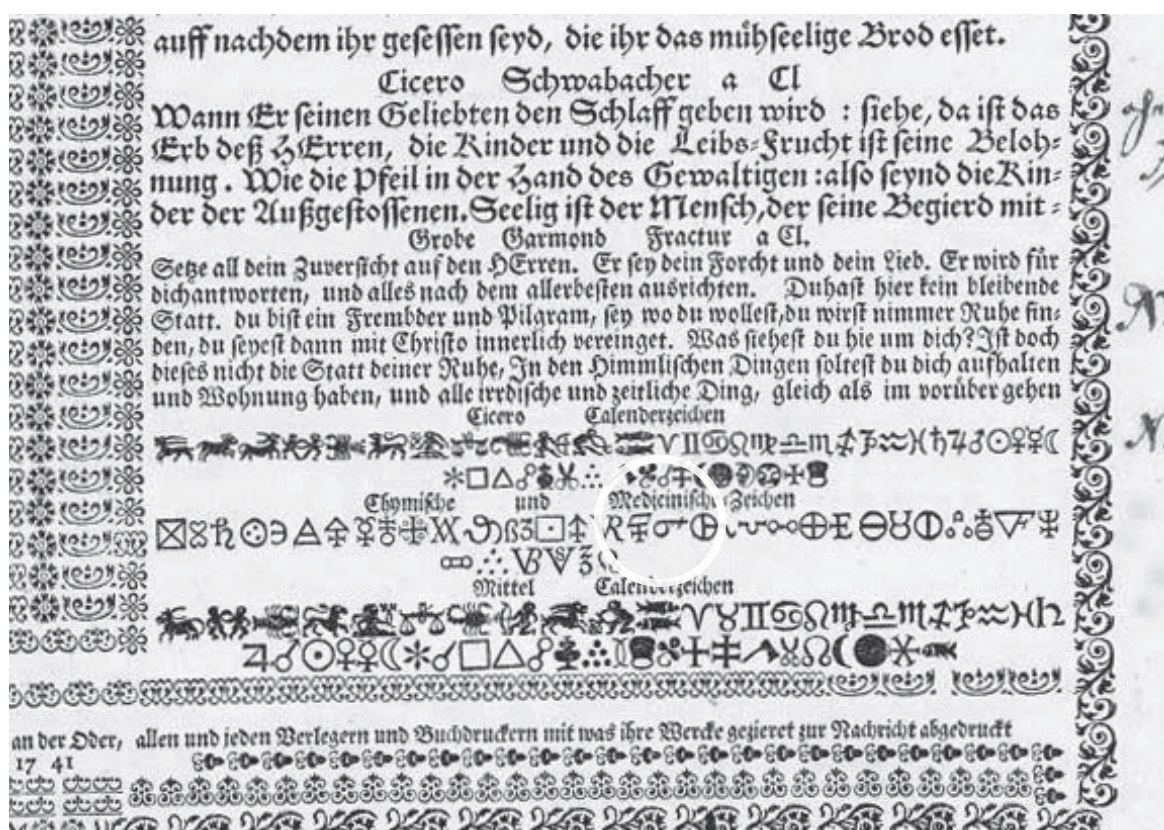 auff nachdem ihr geſeſſen ſeyd, die ihr das mühſeelige Brod eſſet.
Cicero Schwabacher a Cl
Wann Er ſeinen Geliebten den Schlaff geben wird : ſiehe, da iſt das
Erb deß HErren, die Kinder und die Leibs⸗Frucht iſt ſeine Beloh⸗
nung . Wie die Pfeil in der Hand des Gewaltigen :alſo ſeynd die Kin⸗
der der Außgeſtoſſenen. Seelig iſt der Menſch, der ſeine Begierd mit⸗
Grobe Garmond Fractur a Cl.
Setze all dein Zuverſicht auf den HErren. Er ſey dein Forcht und dein Lieb. Er wird für
dichantworten, und alles nach dem allerbeſten ausrichten. Duhaſt hier kein bleibende
Statt. du biſt ein Frembder und Pilgram, ſey wo du wolleſt, du wirſt nimmer Ruhe fin⸗
den, du ſeyeſt dann mit Chriſto innerlich vereinget. Was ſieheſt du hie um dich? Iſt doch
dieſes nicht die Statt deiner Ruhe, In den Himmliſchen Dingen ſolteſt du dich aufhalten
und Wohnung haben, und alle irrdiſche und zeitliche Ding, gleich als im vorüber gehen
Cicero Calenderzeichen
Chymiſche und Mediciniſche Zeichen
Mittel Calenderzeichen
an der Oder, allen und jeden Verlegern und Buchdruckern mit was ihre Wercke gezieret zur Nachricht abgedruckt
17 41